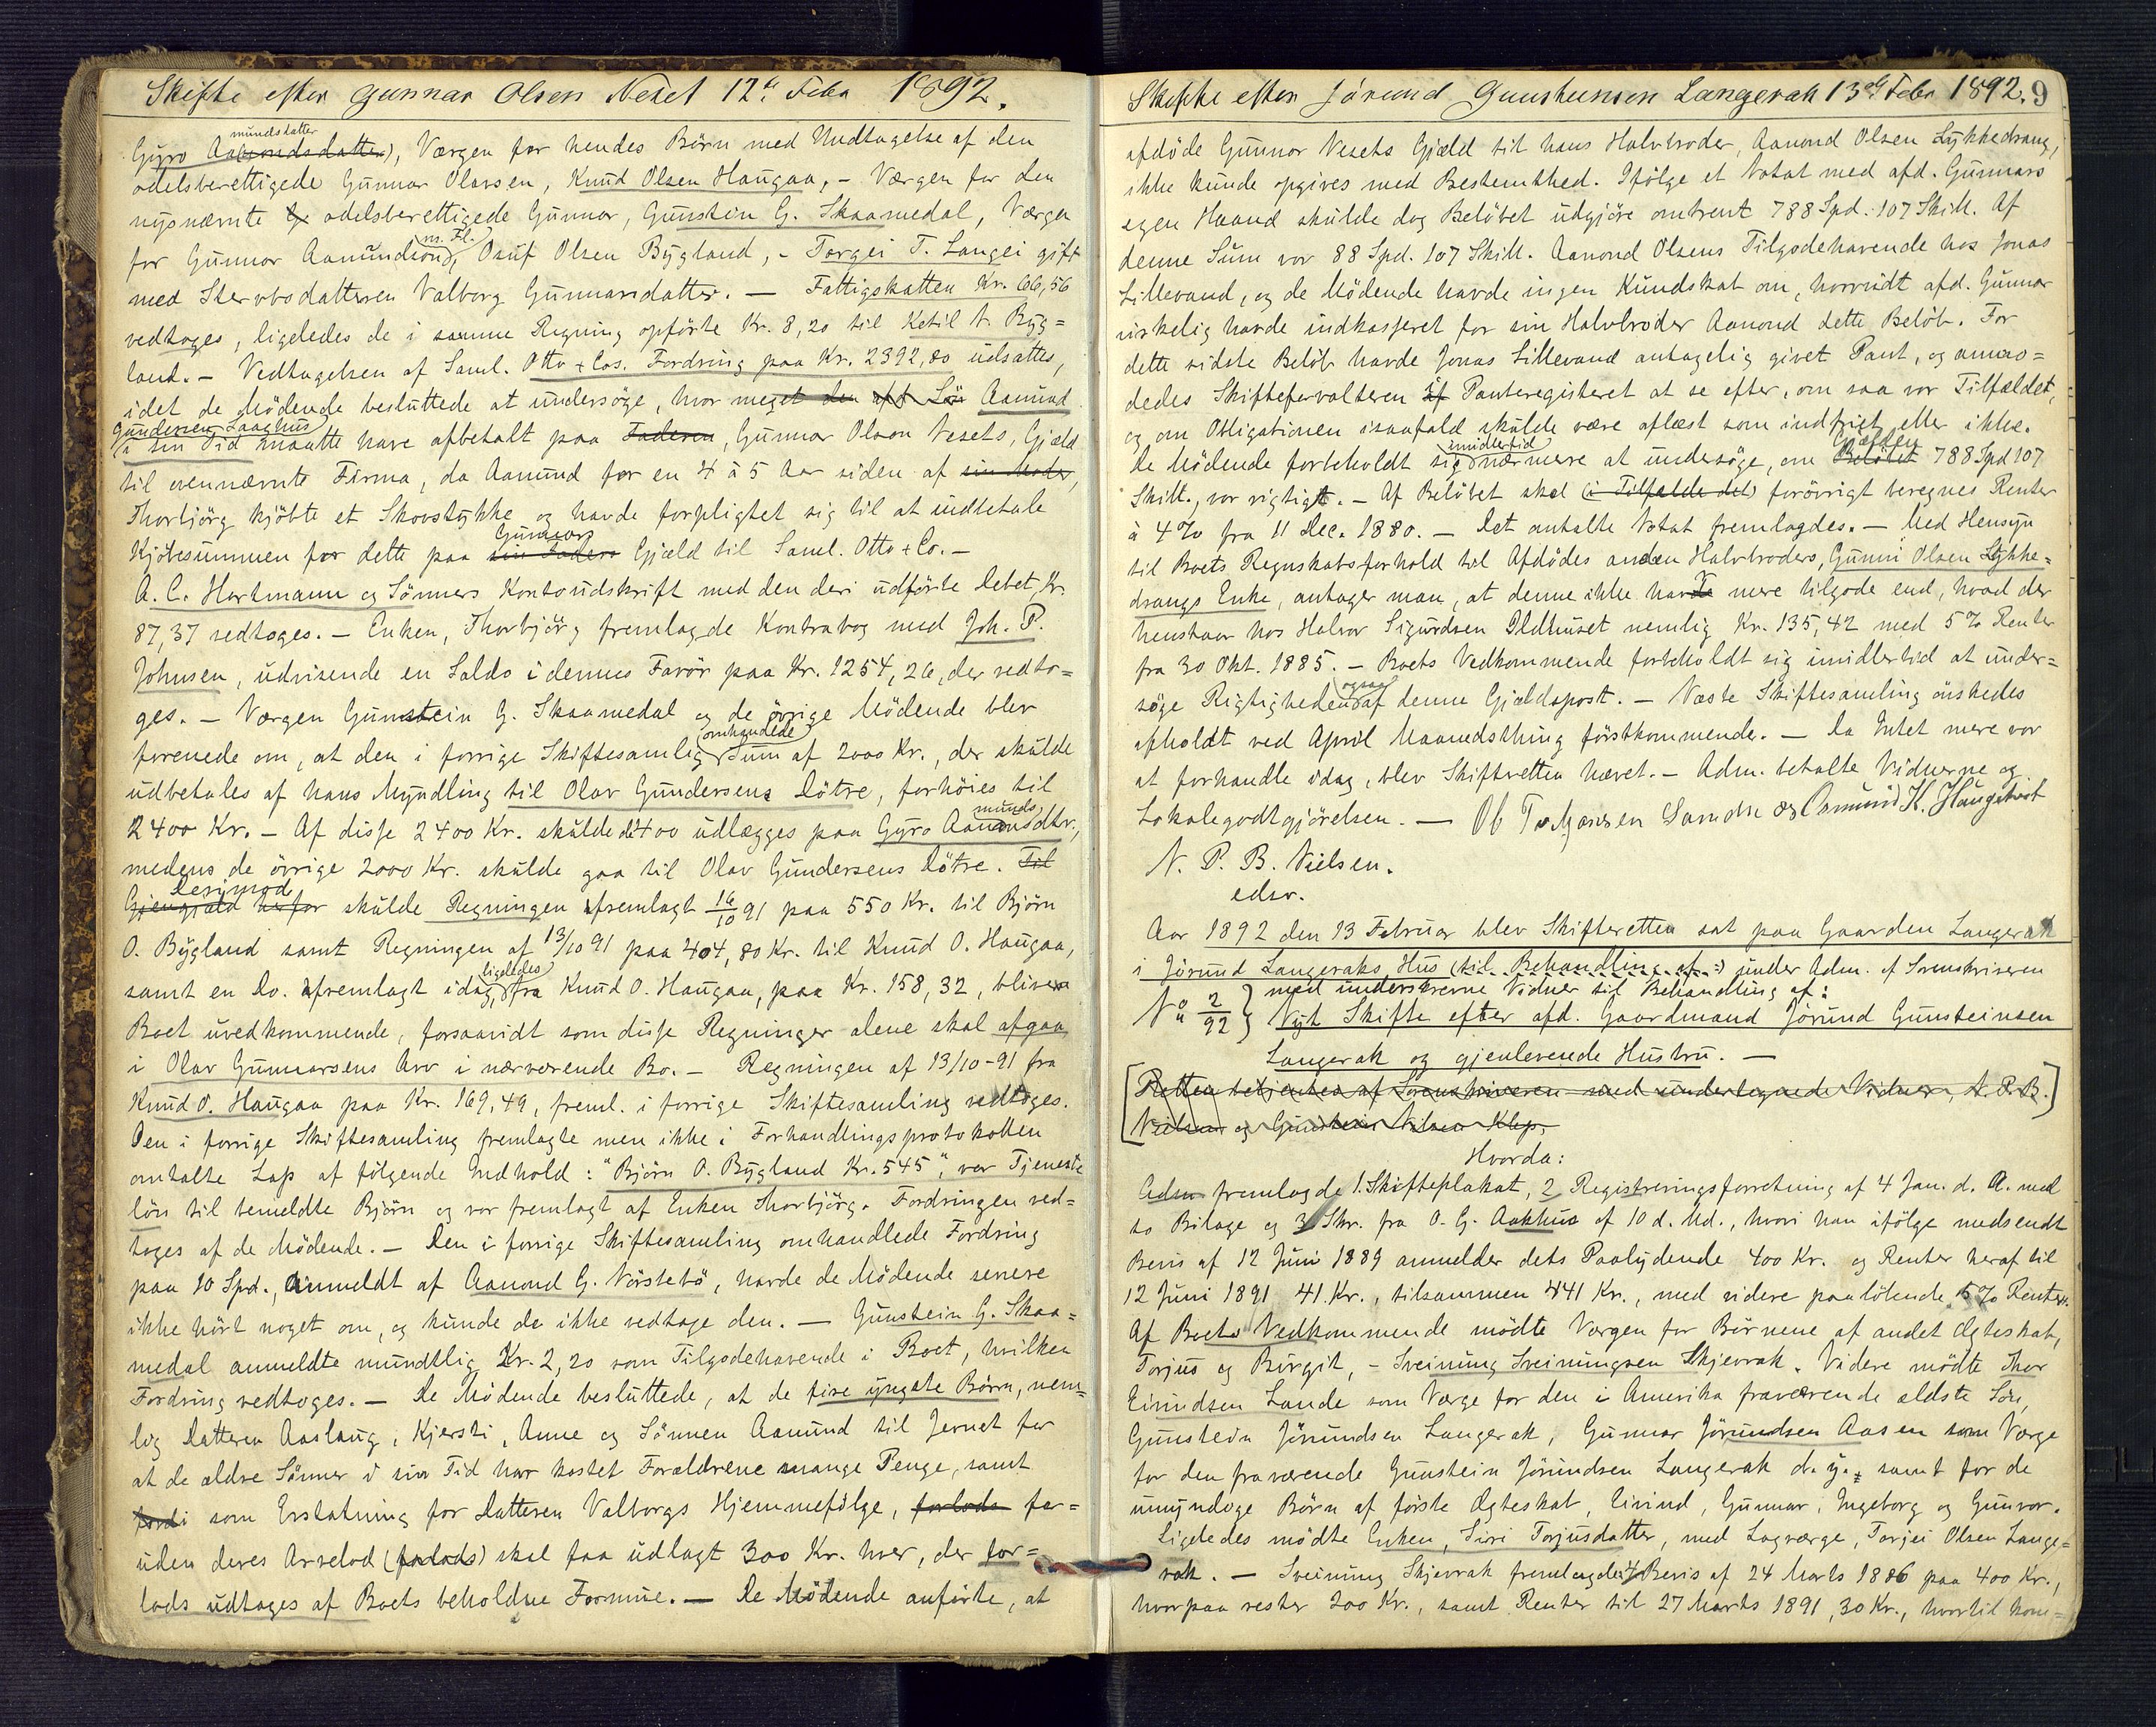 Skifte efter Gunnar Olsen Neset 12te Febr 1892.
mundsdatter
Gyro Aa(mondsdatter), Værgen for hendes Börn med Undtagelse af den
odelsberettigede Gunnar Olavsen, Knud Olsen Haugaa, - Værgen for den
nysnævnte odelsberettigede Gunnar, Gunstein G. Skaamedal, Værgen
for Gunnar Aamundsön, m. Fl. Osuf Olsen Bygland, - Torgei T. Langei gift
med Stervbodatteren Valborg Gunnarsdatter. — Fattigskatten Kr. 66,56
vedtoges, ligeledes de i samme Regning opförte Kr. 8,20 til Ketil N. Byg=
land. - Vedtagelsen af Saml. Otto & Cos. Fordring paa Kr. 2392,80 udsattes,
idet de Mödende besluttede at undersöge, hvor meget den afd. Sön Aamund
Gundersen Saaghus
i sin Tid maatte have afbetalt paa Faderen, Gunnar Olson Nesets, Gjæld
til ovennævnte Firma, da Aamund for en 4 à 5 Aar siden af sin Moder,
Thorbjörg kjöbte et Skovstykke og havde forpligtet sig til at indbetale
Gunnars
Kjöbesummen for dette paa sin Faders Gjæld til Saml. Otto & Co. -
A. C. Hartmann og Sönners Kontoudskrift med den deri udförte Debet, Kr.
87,37 vedtoges. - Enken, Thorbjörg fremlagde Kontrabog med Joh. P.
Johnsen, udvisende en Saldo i dennes Favör paa Kr. 1254,26, der vedto=
ges. - Værgen Gunstein G. Skaamedal og de övrige Mödende blev
omhandlede
forenede om, at den i forrige Skiftesamling Sum af 2000 Kr., der skulde
udbetales af hans Myndling til Olav Gundersens Dötre, forhöies til
munds
2400 Kr. - Af disse 2400 Kr. skulde de 400 udlægges paa Gyro Aamonsdtr.,
medens de övrige 2000 Kr. skulde gaa til Olav Gundersens Dötre. Til
Derimod
Gjengjæld herfor skulde Regningen fremlagt 16/10 91 paa 550 Kr. til Björn
O. Bygland samt Regningen af 13/10 91 paa 404,80 Kr. til Knud O. Haugaa,
ligeledes
samt en Do. fremlagt idag fra Knud O. Haugaa, paa Kr. 158,32, blive
Boet uvedkommende, forsaavidt som disse Regninger alene skal afgaa
i Olav Gunnarsens Arv i nærværende Bo. - Regningen af 13/10-91 fra
Knud O. Haugaa paa Kr. 169,49, freml. i forrige Skiftesamling vedtoges.
Den i forrige Skiftesamling fremlagte men ikke i Forhandlingsprotokollen
omtalte Lap af fölgende Indhold: "Björn O. Bygland Kr. 545", var Tjeneste
lön til bemeldte Björn og var fremlagt af Enken Thorbjörg. Fordringen ved=
toges af de Mödende. - Den i forrige Skiftesamling omhandlede Fordring
paa 10 Spd., anmeldt af Aanond G. Nörstebö, havde de Mödende senere
ikke hört noget om, og kunde da ikke vedtage den. — Gunstein G. Skaa=
medal anmeldte mundtlig Kr. 2,20 som Tilgodehavende i Boet, hvilken
Fordring vedtoges. - De Mödende besluttede, at de fire yngste Börn, nem=
lig Datteren Aaslaug, Kjersti, Anne og Sönnen Aamund til Jevnet for
at de ældre Sönner i sin Tid har kostet Forældrene mange Penge, samt
fordi som Erstatning for Datteren Valborgs Hjemmefölge, forlods for=
uden deres Arvelod (forlods) skal faa udlagt 300 Kr. hver, der for=
lods udtages af Boets beholdne Formue. — De Mödende anförte, at
Skifte efter Jörund Gunsteinsen Langerak 13de Febr 1892. 9
afdöde Gunnar Nesets Gjæld til hans Halvbroder, Aanond Olsen Lykkedrang,
ikke kunde opgives med Bestemthed. Ifölge et Notat med afd. Gunnars
egen Haand skulde dog Belöbet udgjöre omtrent 788 Spd. 107 Skill. Af
denne Sum var 88 Spd. 107 Skill. Aanond Olsens Tilgodehavende hos Jonas
Lillevand, og de Mödende havde ingen Kundskab om, hvorvidt afd. Gunnar
virkelig havde indkasseret for sin Halvbroder Aanond dette Belöb. For
dette sidste Belöb havde Jonas Lillevand antagelig givet Pant, og anmo=
dedes Skifteforvalteren af Panteregisteret at se efter, om saa var Tilfældet,
og om Obligationen isaafald skulde være aflæst som indfriet eller ikke.
imidlertid Gjælden
De Mödende forbeholdt sig nærmere at undersöge, om Belöbet 788 Spd 107
Skill., var rigtigt. - Af Belöbet skal (i Tilfælde det) forövrigt beregnes Renter
à 4% fra 11 Dec. 1880. - Det omtalte Notat fremlagdes. - Med Hensyn
til Boets Regnskabsforhold til Afdödes anden Halvbroders, Gunni Olsen Lykke=
drangs Enke, antager man, at denne ikke har mere tilgode end, hvad der
henstaar hos Halvor Sigurdsen Ildhuset nemlig Kr. 135,42 med 5% Renter
fra 30 Okt. 1885. - Boets Vedkommende forbeholdt sig imidlertid at under=
ogsaa
söge Rigtigheden af denne Gjældspost. - Næste Skiftesamling önskedes
afholdt ved April Maanedsthing förstkommende. - Da Intet mere var
at forhandle idag, blev Skifteretten hævet. - Adm. betalte Vidnerne og
Lokalegodtgjörelsen. — Ob Osmund K. Haugetveit
N. P. B. Nielsen.
edsv.
Aar 1892 den 13 Februar blev Skifteretten sat paa Gaarden Langerak
i Jörund Langeraks Hus (til Behandling af:) under Adm. af Sorenskriveren
med underskrevne Vidner til Behandling af:
No 2/92 } Nyt Skifte efter afd. Gaardmand Jörund Gunsteinsen
Langerak og gjenlevende Hustru. —
[Retten betjentes af Sorenskriveren med undertegnede Vidner, N. P. B.
Nielsen og Gunstein Nilsen Klep.]
Hvorda:
Adm fremlagde 1. Skifteplakat, 2 Registreringsforretning af 4 Jan. d. A. med
to Bilage og 3 Skr. fra O. G. Aakhus af 10 d. Md., hvori han ifölge medsendt
Bevis af 12 Juni 1889 anmelder dets Paalydende 400 Kr. og Renter heraf til
12 Juni 1891 41 Kr., tilsammen 441 Kr., med videre paalöbende 5% Renter.
Af Boets Vedkommende mödte Værgen for Börnene af andet Ægteskab,
Torjus og Birgit, - Sveinung Sveinungsen Skjevrak. Videre mödte Thor
Eivindsen Lande som Værge for den i Amerika fraværende ældste Sön,
Gunstein Jörundsen Langerak, Gunnar Jörundsen Aasen som Værge
for den fraværende Gunstein Jörundsen Langerak d. y. samt for de
umyndige Börn af förste Ægteskab, Eivind, Gunnar, Ingeborg og Gunvor.
Ligeledes mödte Enken, Siri Torjusdatter, med Lagværge, Torjei Olsen Lange=
rak. - Sveinung Skjevrak fremlagde 4 Bevis af 24 Marts 1886 paa 400 Kr.,
hvorpaa rester 200 Kr., samt Renter til 27 Marts 1891, 30 Kr., hvortil kom=